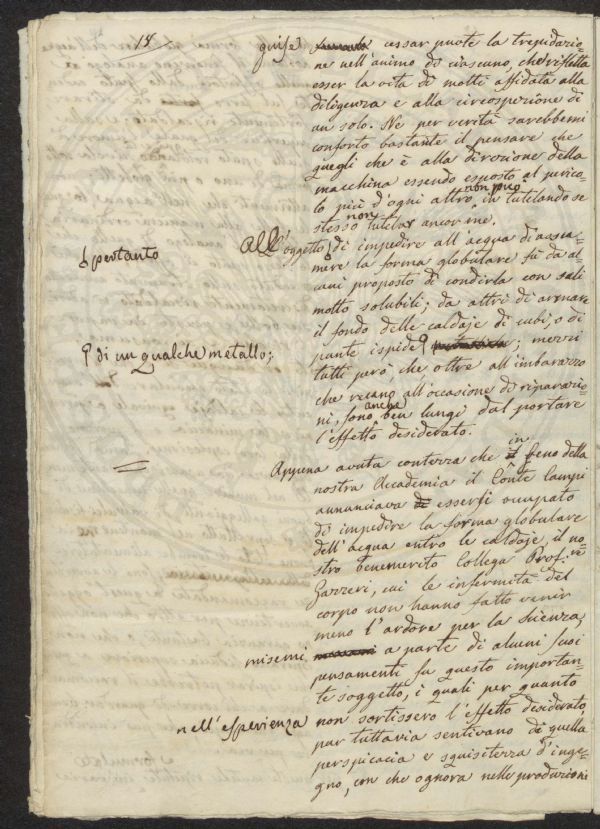 18
guise cessar puote la trepidazio=
ne nell'animo di ciascuno, che rifletta
esser la vita di molti affidata alla
diligenza e alla circospezione di
un solo. Ne per verità sarebbemi
conforto bastante il pensare che
quegli che è alla direzione della
macchina essendo esposto al perico=
lo più d'ogni altro, non può in tutelando se
stesso non tutelar ancor me.
All'oggetto pertanto di impedire all'acqua d'assu=
mere la forma globulare fù da al=
cuni proposto di condirla con sali
molto solubili; da altri di armare
il fondo delle caldaje di cubi, o di
punte ispide di un qualche metallo; mezzi
tutti però che, oltre all'imbarazzo
che recano all'occasione di riparazio=
ni, sono anche ben lungi dal portare
l'effetto desiderato.
Appena avuta contezza che in seno della
nostra Accademia il Conte
annunciava essersi occupato
di impedire la forma globulare
dell'acqua entro le caldaje, il no=
stro benemerito Collega Prof.re
Gazzeri, cui le infermità del
corpo non hanno fatto venir
meno l'ardore per la Scienza,
misemi a parte di alcuni suoi
pensamenti su questo importan=
te soggetto, i quali per quanto
nell'esperienza non sortissero l'effetto desiderato,
pur tuttavia sentivano di quella
perspicacia e squisitezza d'inge=
gno, con che ognora nelle produzioni